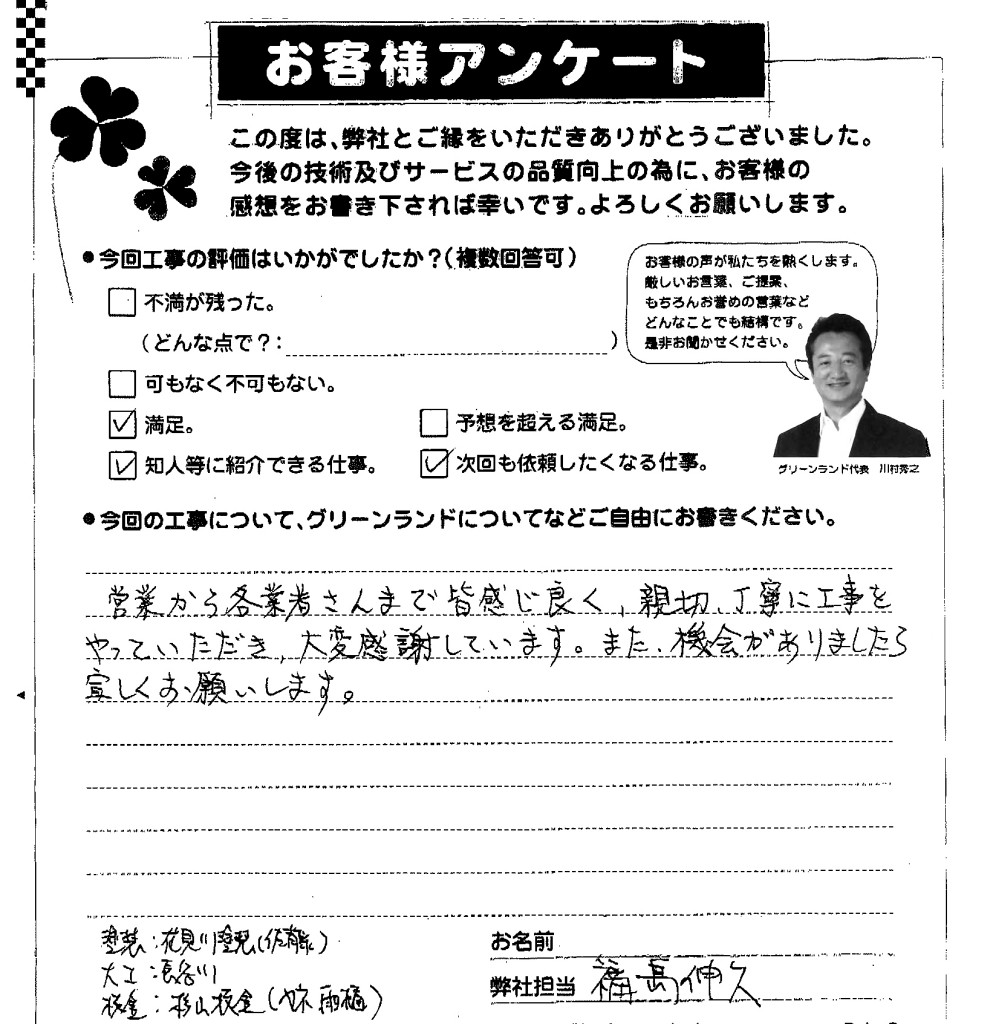 お客様アンケート
この度は、弊社とご縁をいただきありがとうございました。
今後の技術及びサービスの品質向上の為に、お客様の
感想をお書き下されば幸いです。よろしくお願いします。
●今回工事の評価はいかがでしたか？（複数回答可）
不満が残った。
（どんな点で？：　）
可もなく不可もない。
満足。
予想を超える満足。
知人等に紹介できる仕事。
次回も依頼したくなる仕事。
お客様の声が私たちを熱くします。
厳しいお言葉、ご提案、
もちろんお誉めの言葉など
どんなことでも結構です。
是非お聞かせください。
グリーンランド代表　川村秀之
●今回の工事について、グリーンランドについてなどご自由にお書きください。
営業から各業者さんまで皆感じ良く、親切、丁寧に工事を
やっていただき、大変感謝しています。また、機会がありましたら
宜しくお願いします。
塗装：花見川塗装（佐藤）
大工：長谷川
板金：杉山板金（雨樋）
お名前
弊社担当 福島伸久